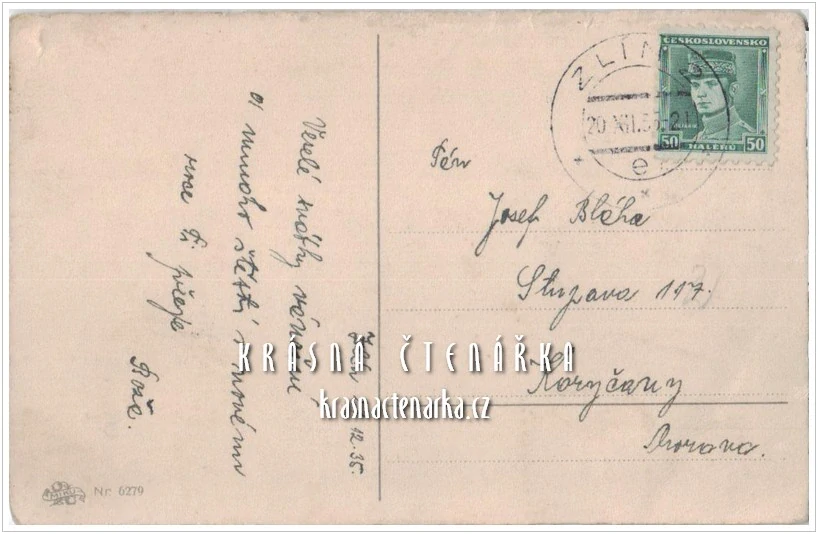 Veselé svátky vánoční
a mnoho štěstí v novém
roce Ti přeje
Róza.
Zlín
12.35.
Pán
Josef Bláha
Stupava 117.
Koryčany
Morava.
ZLÍN
20.XII.35-21
e
ČESKOSLOVENSKO
50 HALÉŘŮ 50
KRÁSNÁ ČTENÁŘKA
krasnactenarka.cz
Nr. 6279